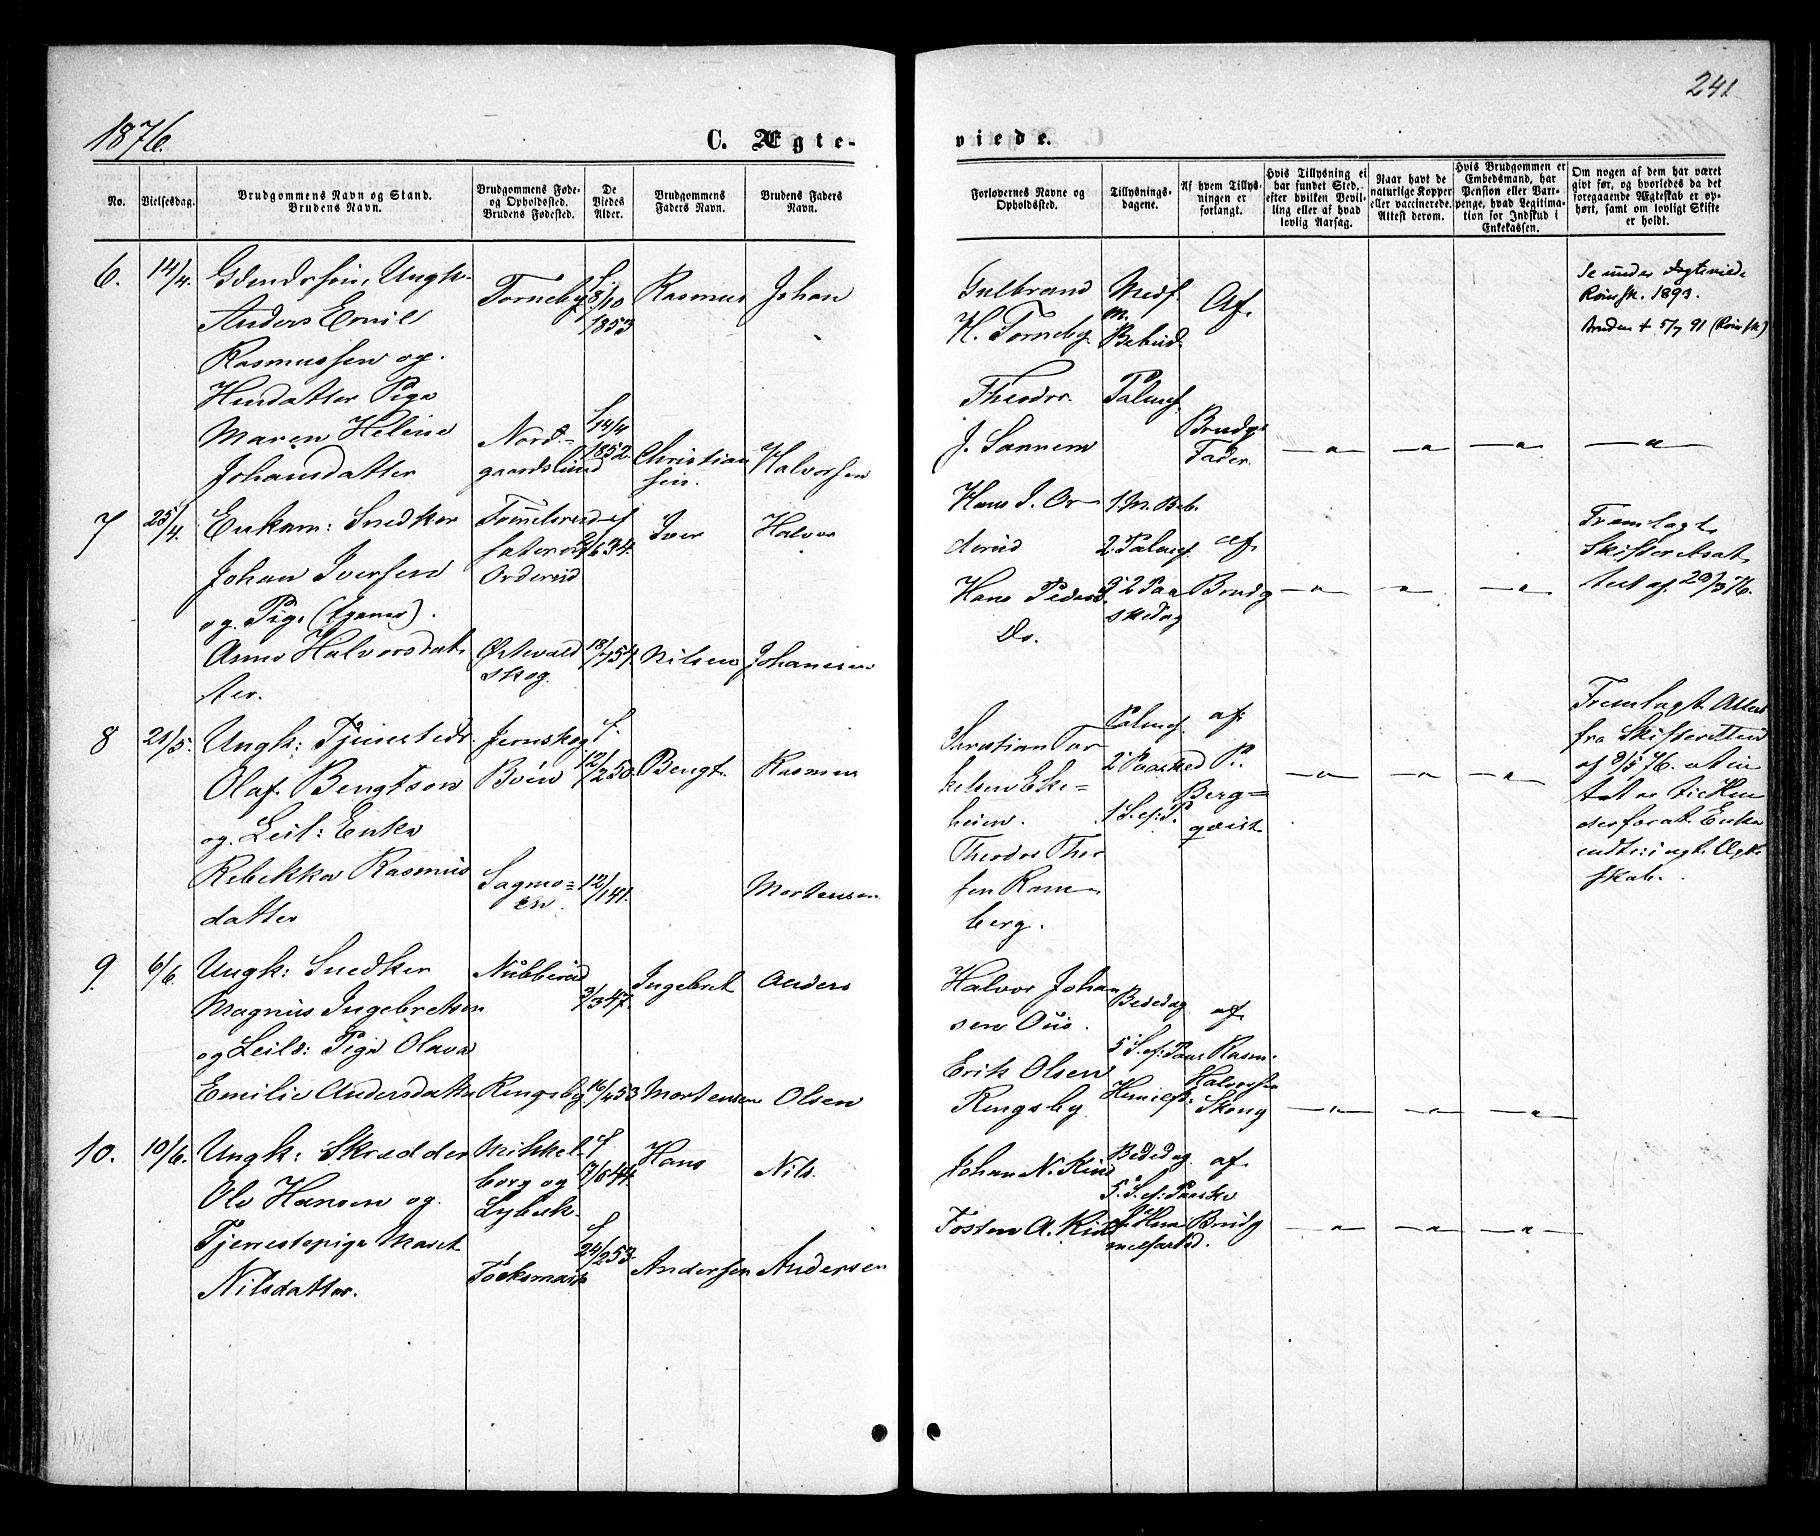 241
1876.
C. Ægte-
viede.
No.
Vielsesdag.
Brudgommens Navn og Stand.
Brudens Navn.
Brudgommens Føde-
og Opholdssted.
Brudens Fødested.
De
Viedes
Alder.
Brudgommens
Faders Navn.
Brudens Faders
Navn.
Forlovernes Navne og
Opholdssted.
Tillysnings-
dagene.
Af hvem Tillys-
ningen er
forlangt.
Hvis Tillysning ei
har fundet Sted,
efter hvilken Bevil-
ling eller af hvad
lovlig Aarsag.
Naar havt de
naturlige Kopper
eller vaccinerede.
Attest derom.
Hvis Brudgommen er
Embedsmand, har
Pension eller Vart-
penge, hvad Legitima-
tion for Indskud i
Enkekassen.
Om nogen af dem har været
givt før, og hvorledes da det
foregaaende Ægteskab er op-
hørt, samt om lovligt Skifte
er holdt.
6. 14/4. Ungk.
Anders Emil
Rasmussen og
Pige
Maren Helene
Johansdatter
Torneby
Nord-
gaardslund
f. 8/10
1853
f. 14/4
1852.
Rasmus
Christian
sen.
Johan
Halvorsen
Gulbrand
H. Torneby
Theodor
J. Sannem
Palmes.
Af
Brudg.
Fader.
Se under Ægteviede
Rømsk. 1893.
Bruden † 5/7 91 (Rømsk)
7 25/4. Enkem: Snedker
Johan Iversen
og Pige
Anne Halvorsdat-
ter.
Orderud
Østevald
skog.
18/7 54.
Iver
Nilsen
Halvor
Johanesen
Hans J. Or-
derud
Hans Peders.
Do.
1. M. Beb.
2. Palmes.
2 Paa
skedag
af
Brudg
Fremlagt
Skifteretsat-
test af 29/3 76.
8 21/5. Ungk: Tjenestedr.
Olaf Bengtson
og Leil: Enke
Rebekka Rasmus
datter
Jernskog
Boen
Sagmo=
en.
f.
12/2 50.
12/1 41.
Bengt.
Rasmus
Mortensen
Christian Tor
kelsen Eke=
heim.
Theodor Thor
sen Ram-
berg.
Palmes.
2 Paasked
1 S. ef: P.
af
P.
Berg=
qvist
Fremlagt Attest
fra Skifteretten
af 9/5 76. at in
tet er til Hin
der for at Enken
indtr: i nyt Ægte
skab.
9. 6/6. Ungk: Snedker
Magnus Ingebretsen
og Leil: Pige Olava
Emilie Andersdatter
Nubberud
Ringsby
9/3 47.
16/4 53
Ingebret
Mortensen
Anders
Olsen
Halvor Johan
sen Ous.
Erik Olsen
Ringsby
Bededag
5 S. ef: Paas
Himlf:
af
Rasm.
Halvorsen
Skoug
10. 10/6. Ungk: Skrædder
Ole Hansen og
Tjenestepige Maret
Nilsdatter.
Mikkel-
borg og
Lybeck.
Töcksmark
f
17/6 44.
f
24/2 53.
Hans
Andersen
Nils.
Andersen
Johan N. Kind
Tosten A. Kind
Bededag
5. S. ef: Paaske
Him
melfartsd.
af
Brudg